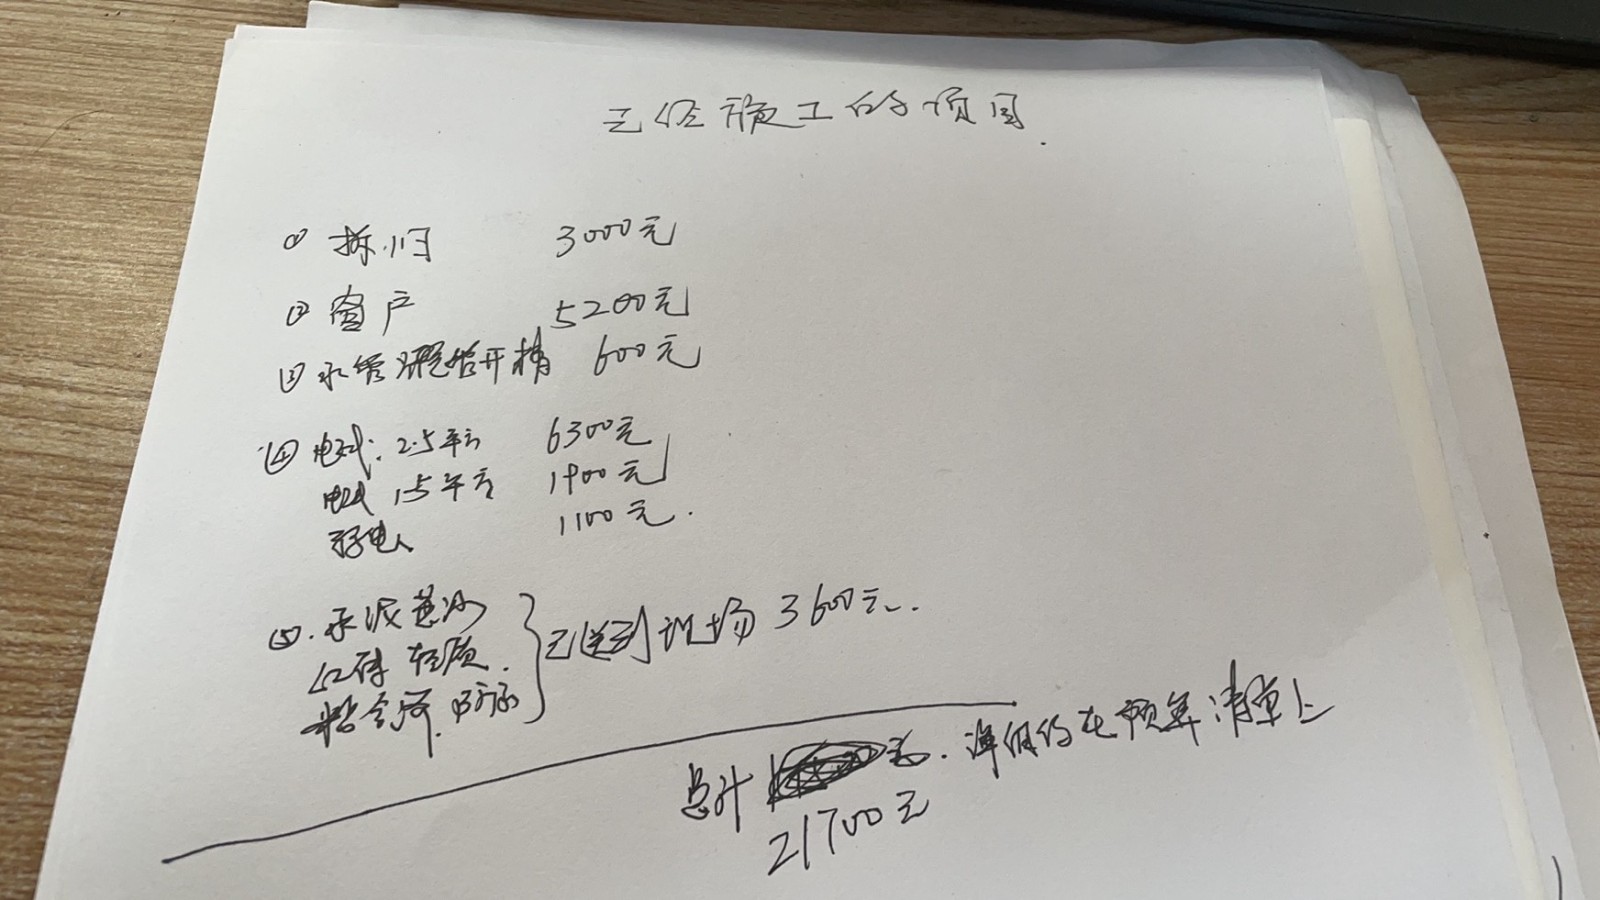 已经施工的项目.
① 拆旧 3000元
② 窗户 5200元
③ 水管开槽 600元
④ 电线: 2.5平方 6300元
电线 1.5平方 1900元
弱电 1100元.
⑤. 水泥黄沙
红砖 轻质.
粘合剂. 防水
已送到现场 3600元.
总计 元. 单价均在预算清单上
21700元